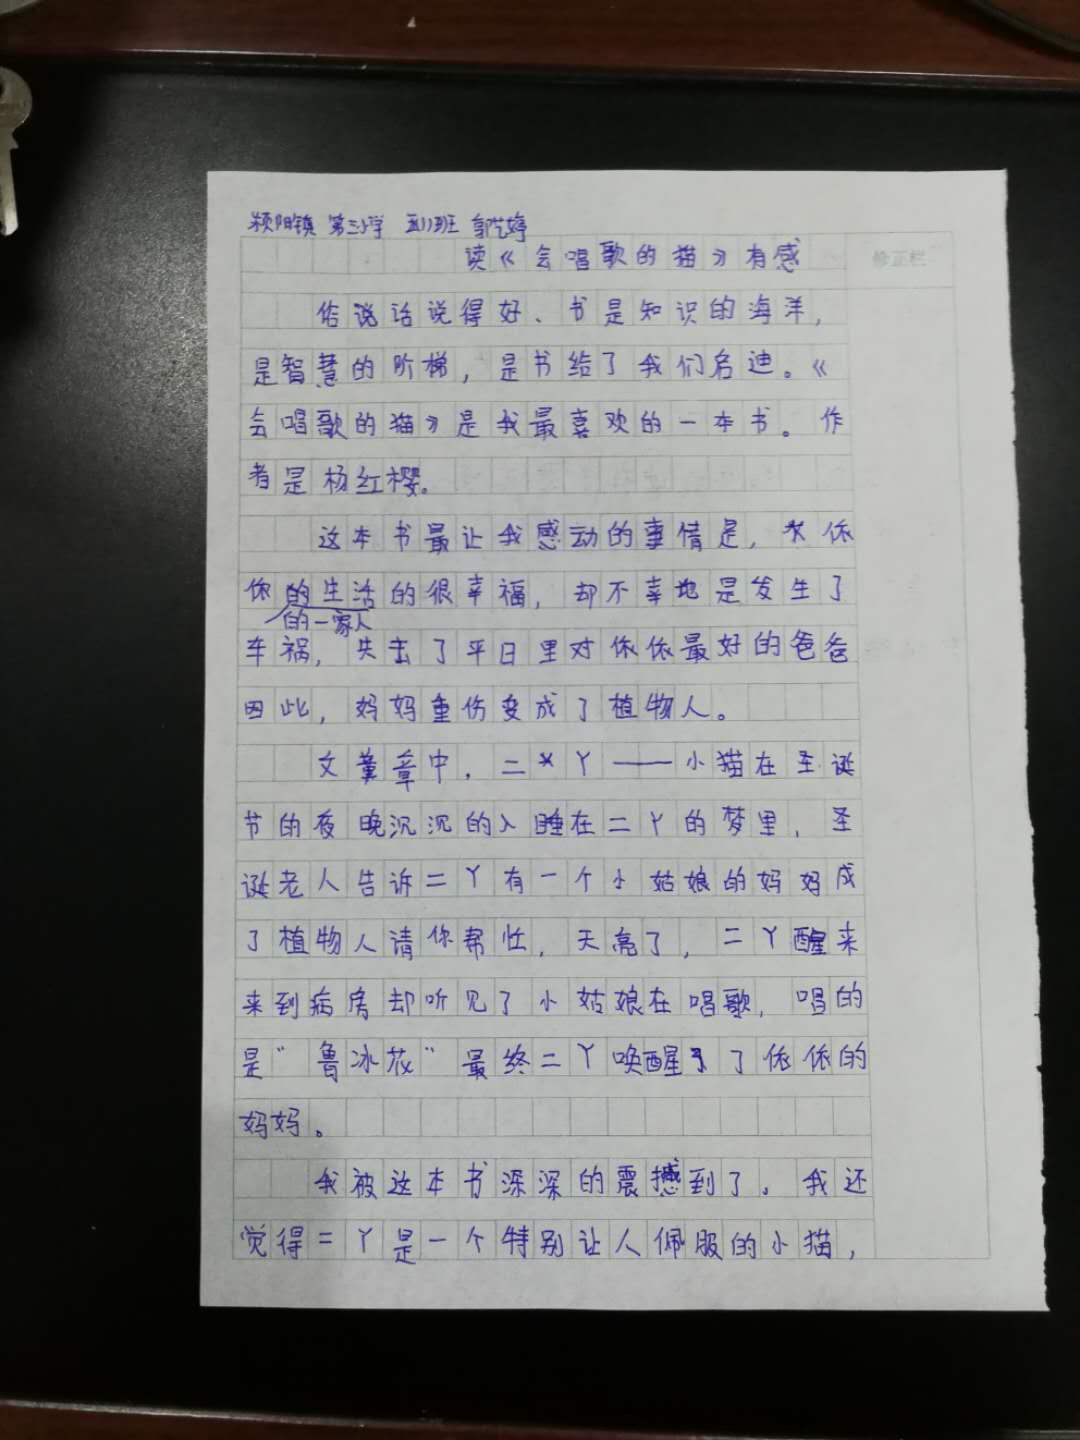 颍阳镇 第三小学 五(1)班 郭艺婷
读《会唱歌的猫》有感
修正栏
俗说话说得好、书是知识的海洋,
是智慧的阶梯,是书给了我们启迪。《
会唱歌的猫》是我最喜欢的一本书。作
者是杨红樱。
这本书最让我感动的事情是,依
依的生活的很幸福,却不幸地是发生了
的一家人
车祸,失去了平日里对依依最好的爸爸
因此,妈妈重伤变成了植物人。
文章章中,二丫——小猫在圣诞
节的夜晚沉沉的入睡在二丫的梦里,圣
诞老人告诉二丫有一个小姑娘的妈妈成
了植物人请你帮忙,天亮了,二丫醒来
来到病房却听见了小姑娘在唱歌,唱的
是“鲁冰花”最终二丫唤醒了依依的
妈妈。
我被这本书深深的震撼到了。我还
觉得二丫是一个特别让人佩服的小猫,